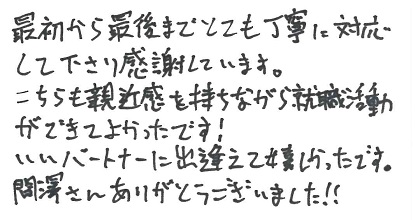 最初から最後までとても丁寧に対応
して下さり感謝しています。
こちらも親近感を持ちながら就職活動
ができてよかったです!
いいパートナーに出逢えて嬉しかったです。
間澤さんありがとうございました!!